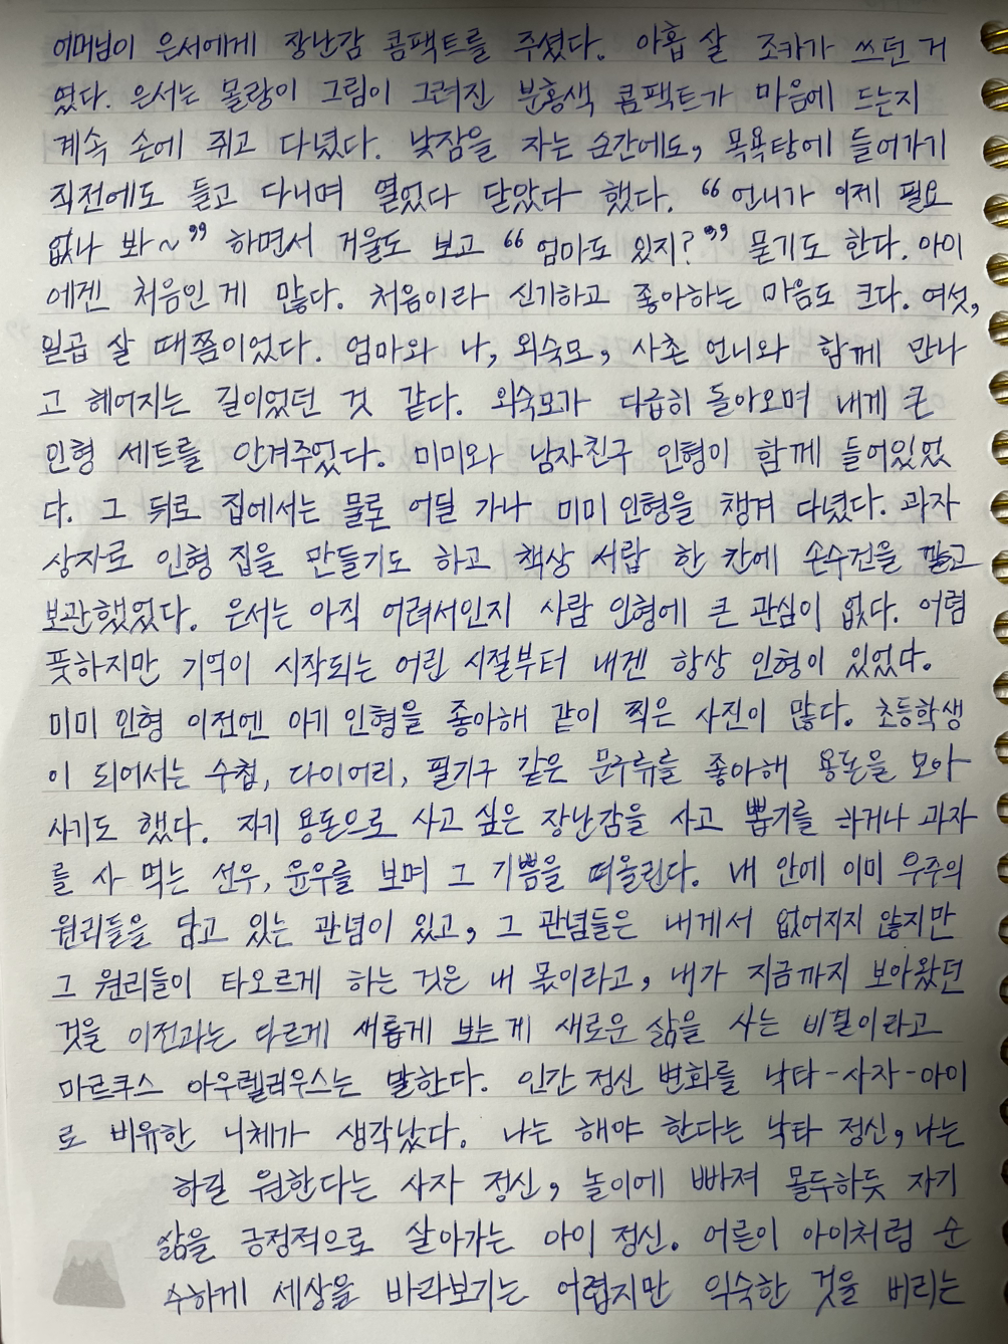 어머님이 은서에게 장난감 콤팩트를 주셨다. 아홉 살 조카가 쓰던 거
였다. 은서는 몰랑이 그림이 그려진 분홍색 콤팩트가 마음에 드는지
계속 손에 쥐고 다녔다. 낮잠을 자는 순간에도, 목욕탕에 들어가기
직전에도 들고 다니며 열었다 닫았다 했다. “언니가 이제 필요
없나 봐~” 하면서 거울도 보고 “엄마도 있지?” 묻기도 한다. 아이
에겐 처음인 게 많다. 처음이라 신기하고 좋아하는 마음도 크다. 여섯,
일곱 살 때쯤이었다. 엄마와 나, 외숙모, 사촌 언니와 함께 만나
고 헤어지는 길이었던 것 같다. 외숙모가 다급히 돌아오며 내게 큰
인형 세트를 안겨주었다. 미미와 남자친구 인형이 함께 들어있었
다. 그 뒤로 집에서는 물론 어딜 가나 미미 인형을 챙겨 다녔다. 과자
상자로 인형 집을 만들기도 하고 책상 서랍 한 칸에 손수건을 깔고
보관했었다. 은서는 아직 어려서인지 사람 인형에 큰 관심이 없다. 어렴
풋하지만 기억이 시작되는 어린 시절부터 내겐 항상 인형이 있었다.
미미 인형 이전엔 아기 인형을 좋아해 같이 찍은 사진이 많다. 초등학생
이 되어서는 수첩, 다이어리, 필기구 같은 문구류를 좋아해 용돈을 모아
사기도 했다. 자기 용돈으로 사고 싶은 장난감을 사고 뽑기를 하거나 과자
를 사 먹는 선우, 윤우를 보며 그 기쁨을 떠올린다. 내 안에 이미 우주의
원리들을 담고 있는 관념이 있고, 그 관념들은 내게서 없어지지 않지만
그 원리들이 타오르게 하는 것은 내 몫이라고, 내가 지금까지 보아왔던
것을 이전과는 다르게 새롭게 보는 게 새로운 삶을 사는 비결이라고
마르쿠스 아우렐리우스는 말한다. 인간 정신 변화를 낙타-사자-아이
로 비유한 니체가 생각났다. 나는 해야 한다는 낙타 정신, 나는
하길 원한다는 사자 정신, 놀이에 빠져 몰두하듯 자기
삶을 긍정적으로 살아가는 아이 정신. 어른이 아이처럼 순
수하게 세상을 바라보기는 어렵지만 익숙한 것을 버리는